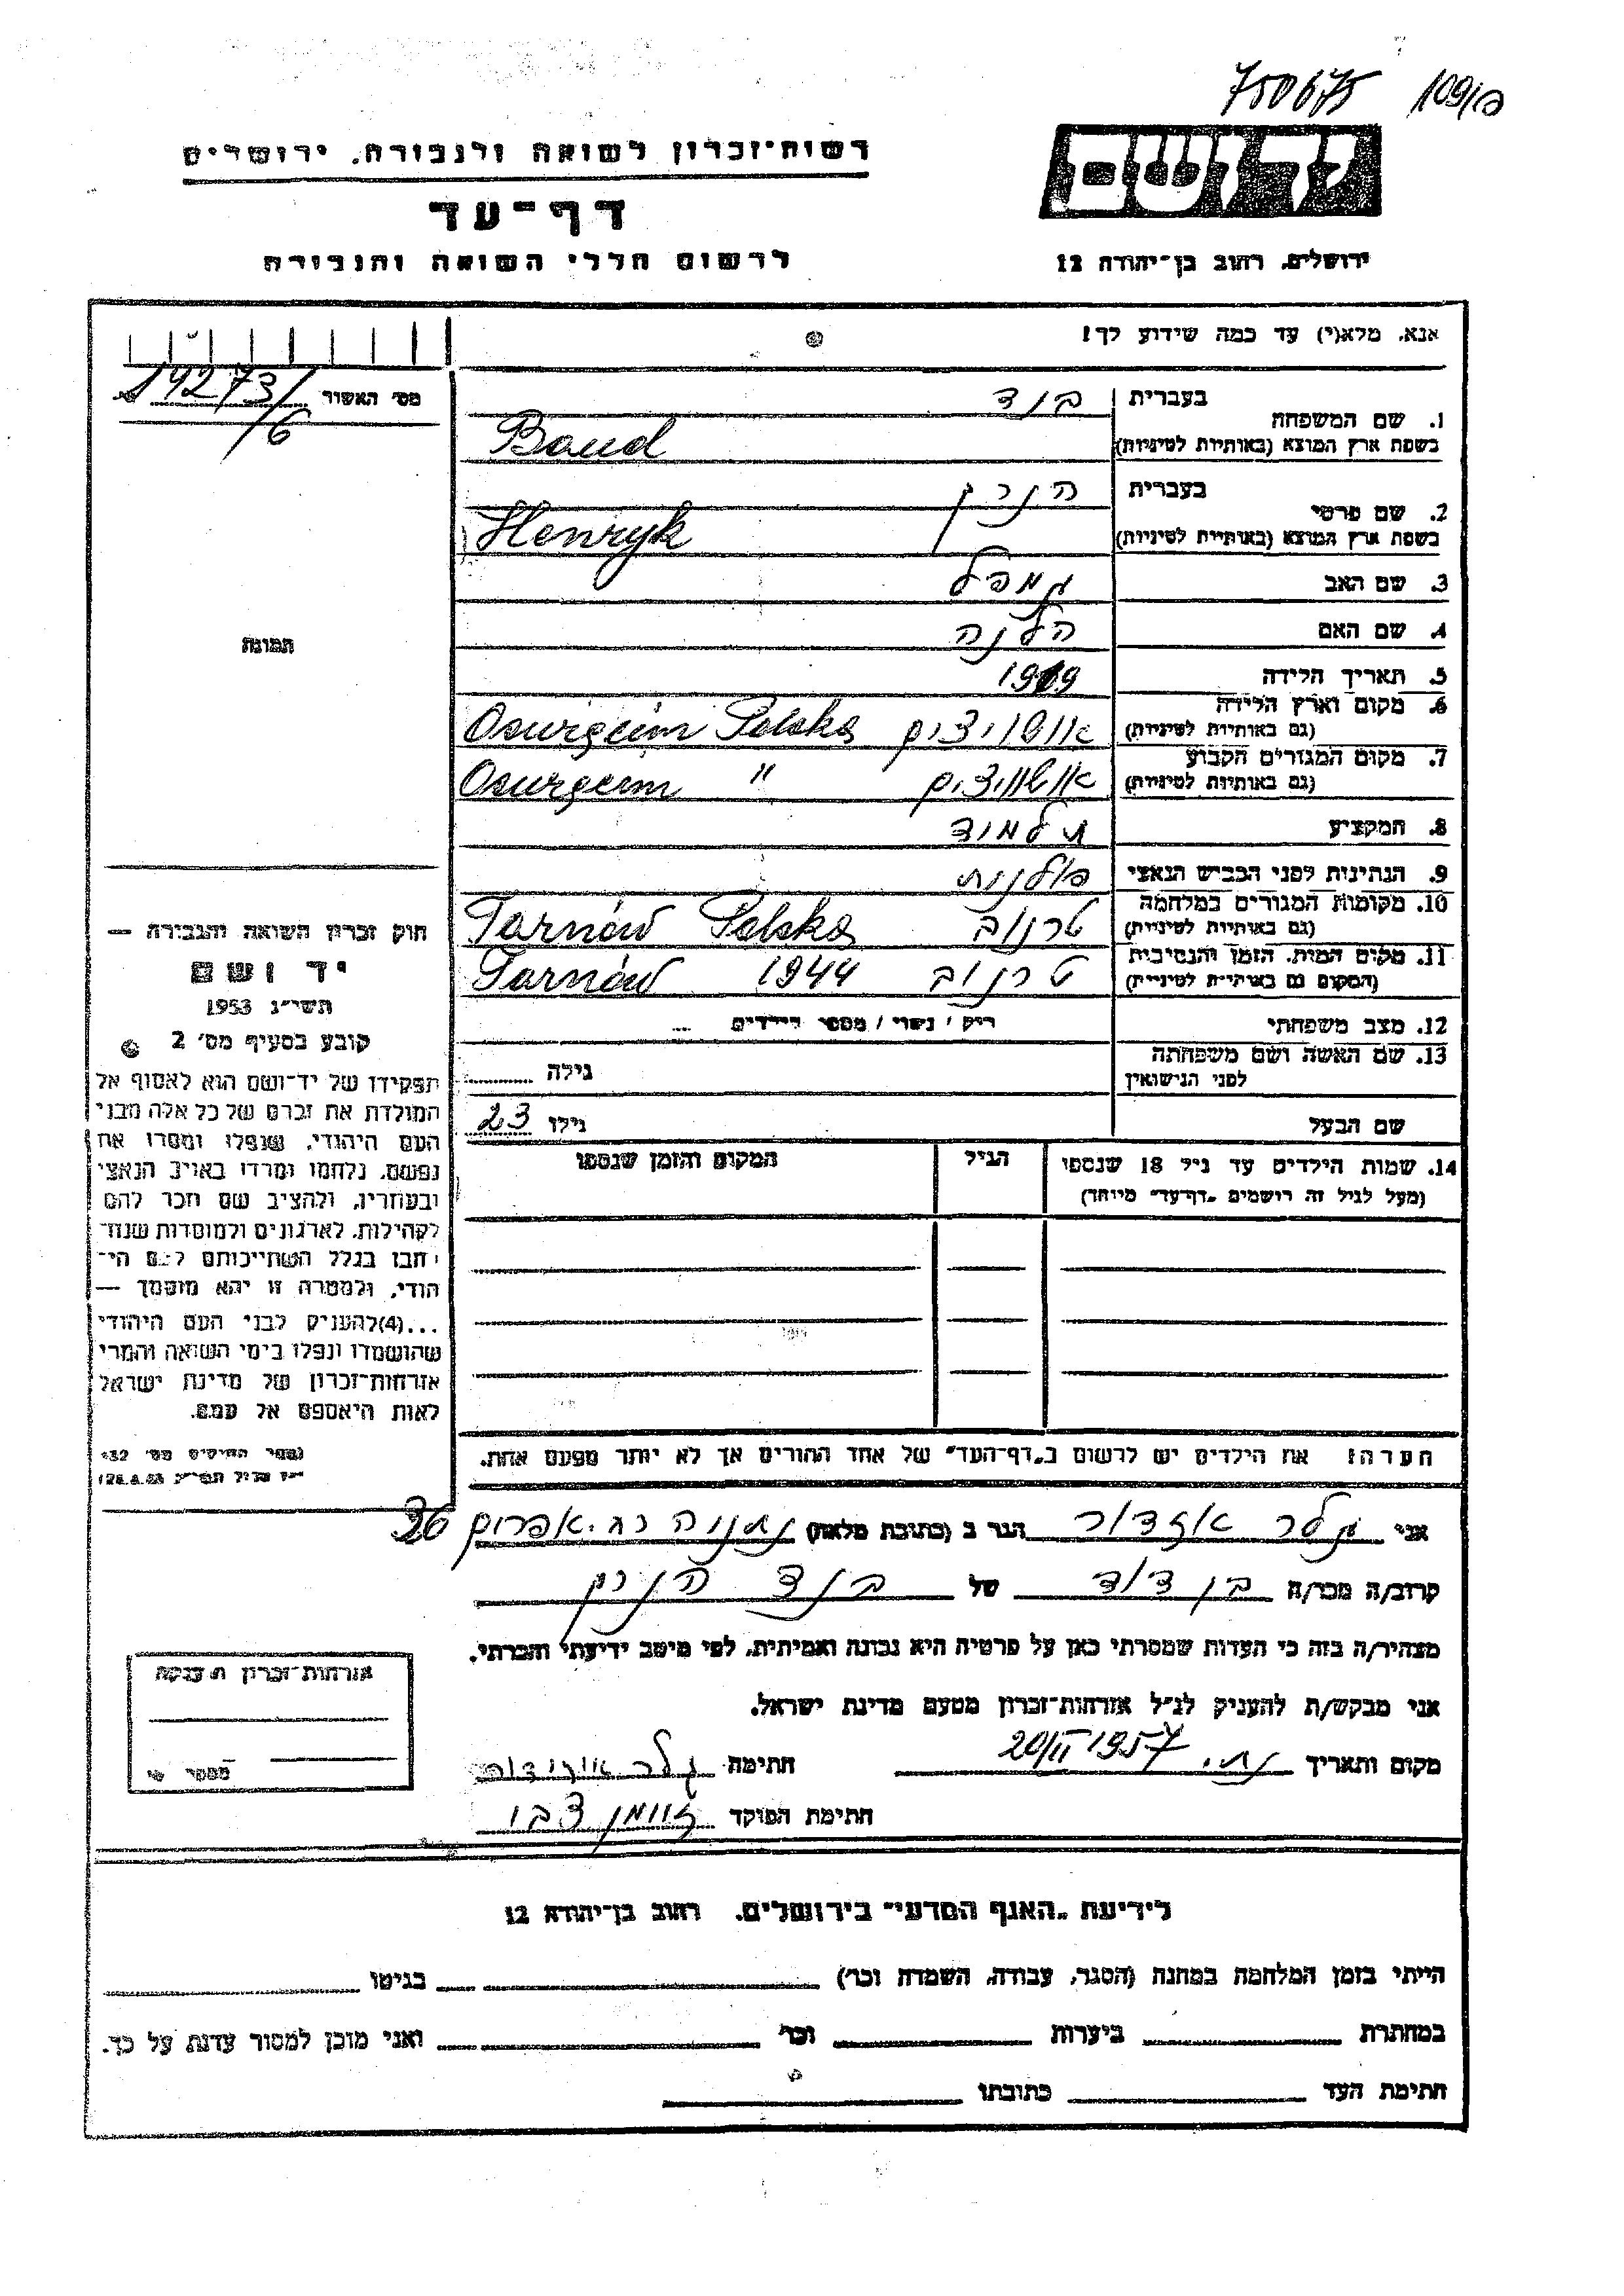 750675 109/פ
רשות־זכרון לשואה ולגבורה, ירושלים
דף־עד
לרשום חללי השואה והגבורה
יד ושם
ירושלים, רחוב בן־יהודה 12
אנא, מלא(י) עד כמה שידוע לך!
מס׳ האשור 14273/6
1. שם המשפחה
בעברית בנד
בשפת ארץ המוצא (באותיות לטיניות) Band
2. שם פרטי
בעברית הנרק
בשפת ארץ המוצא (באותיות לטיניות) Henryk
3. שם האב
4. שם האם הלנה
5. תאריך הלידה 1919
6. מקום וארץ הלידה
(גם באותיות לטיניות) Polska
7. מקום המגורים הקבוע
(גם באותיות לטיניות) "
8. המקצוע תלמוד
9. הנתינות לפני הכבוש הנאצי פולנית
10. מקומות המגורים במלחמה
(גם באותיות לטיניות) טרנוב Tarnów Polska
11. מקום המות, הזמן והנסיבות
(המקום גם באותיות לטיניות) טרנוב 1944 Tarnów
12. מצב משפחתי רוק / נשוי / מספר הילדים ...
13. שם האשה ושם משפחתה
לפני הנישואין
גילה
שם הבעל
גילו 23
14. שמות הילדים עד גיל 18 שנספו
(מעל לגיל זה רושמים „דף־עד״ מיוחד)
הגיל
המקום והזמן שנספו
תמונה
חוק זכרון השואה והגבורה —
יד ושם
תשי״ג 1953
קובע בסעיף מס׳ 2
תפקידו של יד־ושם הוא לאסוף אל
המולדת את זכרם של כל אלה מבני
העם היהודי, שנפלו ומסרו את
נפשם, נלחמו ומרדו באויב הנאצי
ובעוזריו, ולהציב שם וזכר להם
לקהילות, לארגונים ולמוסדות שנח־
רבו בגלל השתייכותם לעם הי־
הודי, ולמטרה זו יהא מוסמך —
...(4)להעניק לבני העם היהודי
שהושמדו ונפלו בימי השואה והמרי
אזרחות־זכרון של מדינת ישראל
לאות היאספם אל עמם.
הערה: את הילדים יש לרשום ב„דף־העד״ של אחד ההורים אך לא יותר מפעם אחת.
אני גלר הגר ב (כתובת מלאה) נתניה רח. אפרים 36
קרוב/ה מכר/ה בן דוד של בנד הנרק
מצהיר/ה בזה כי העדות שמסרתי כאן על פרטיה היא נכונה ואמיתית, לפי מיטב ידיעתי והכרתי.
אני מבקש/ת להעניק לנ״ל אזרחות־זכרון מטעם מדינת ישראל.
מקום ותאריך נת. 20/II 1957 חתימה גלר
חתימת הפוקד
אזרחות־זכרון הוענקה
מספר
לידיעת „האגף המדעי״ בירושלים, רחוב בן־יהודה 12
הייתי בזמן המלחמה במחנה (הסגר, עבודה, השמדה וכו׳) בגיטו
במחתרת ביערות וכו׳ ואני מוכן למסור עדות על כך.
חתימת העד כתובתו